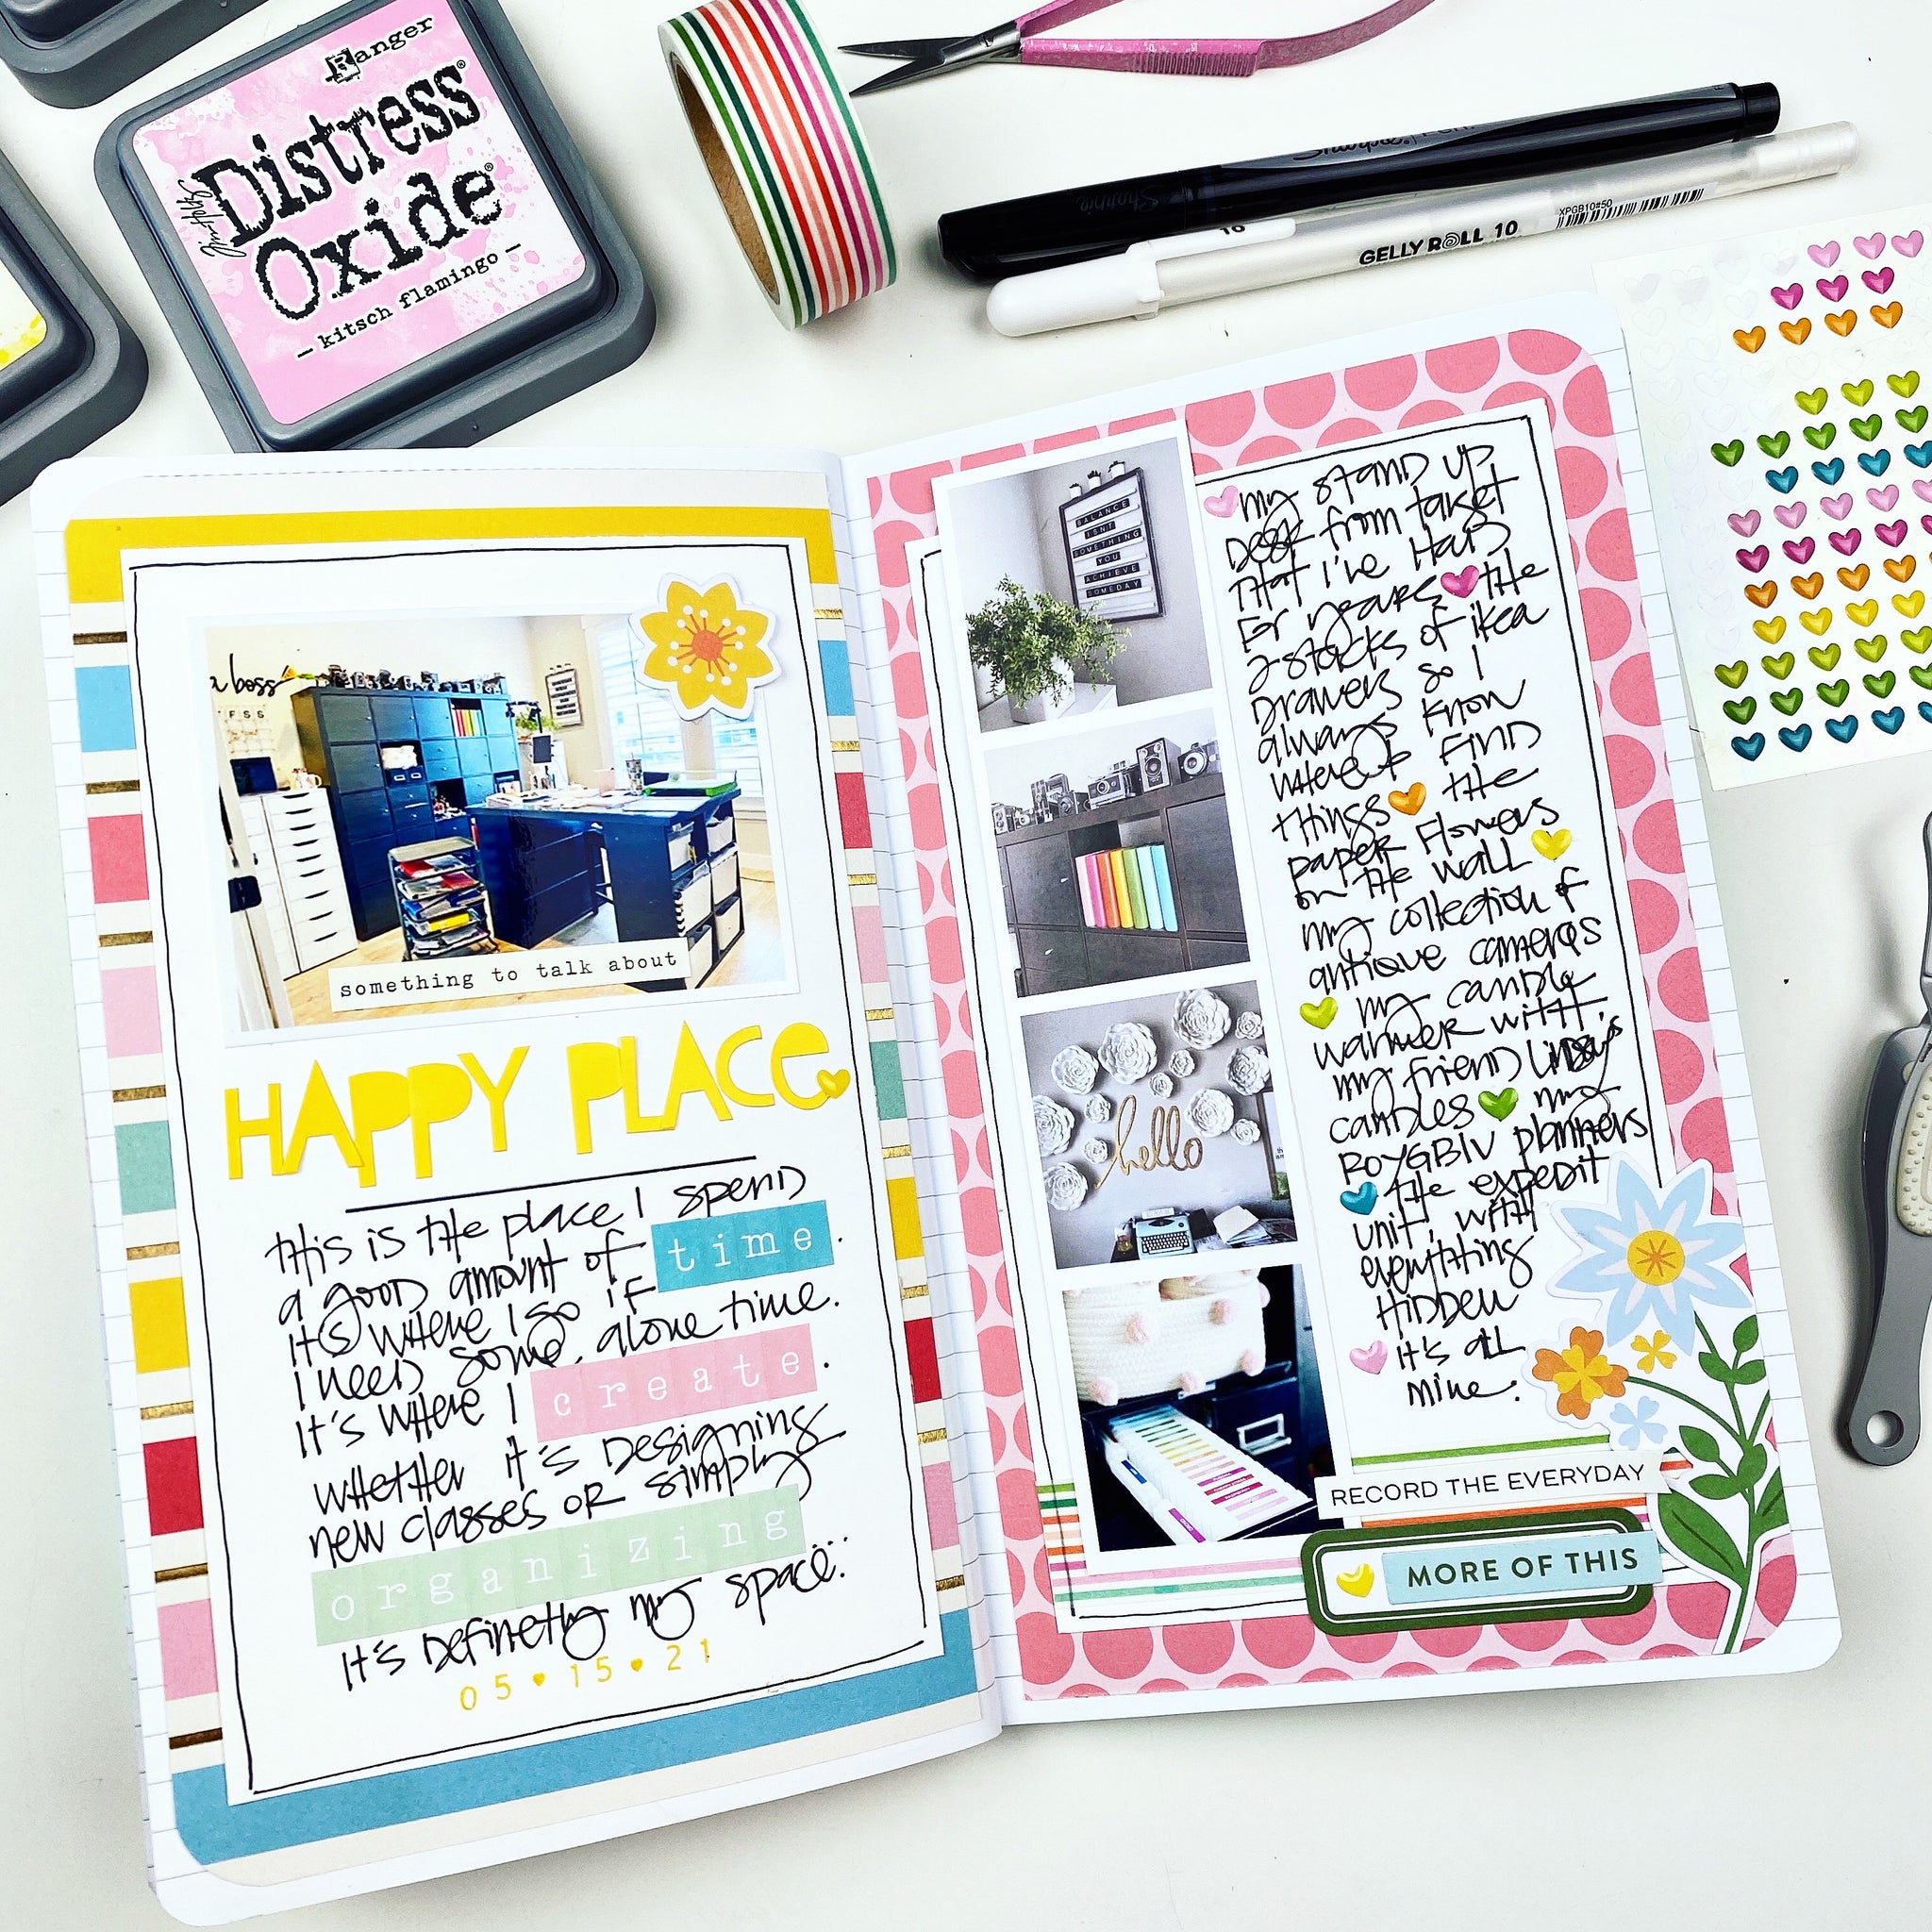 Ranger
Distress
Oxide
— kitsch flamingo —
Sharpie
Sharpie Pen.
10
GELLY ROLL 10
XPGB10#50
a boss
F S S
something to talk about
HAPPY PLACe
this is the place I spend
a good amount of time.
it's where I go if
I need some alone time.
it's where I create.
whether it's designing
new classes or simply
organizing
it's definetly my space.
05♥15♥21
BALANCE
ISN'T
SOMETHING
YOU
ACHIEVE
SOMEDAY
hello
my stand up
desk from target
that i've had
for years the
2 stacks of ikea
drawers so I
always know
where to find
things the
paper flowers
on the wall
my collection of
antique cameras
my candle
warmer with
my friend Lindsay's
candles my
ROYGBIV planners
the expedit
unit, with
everything
hidden
it's all
mine.
RECORD THE EVERYDAY
MORE OF THIS